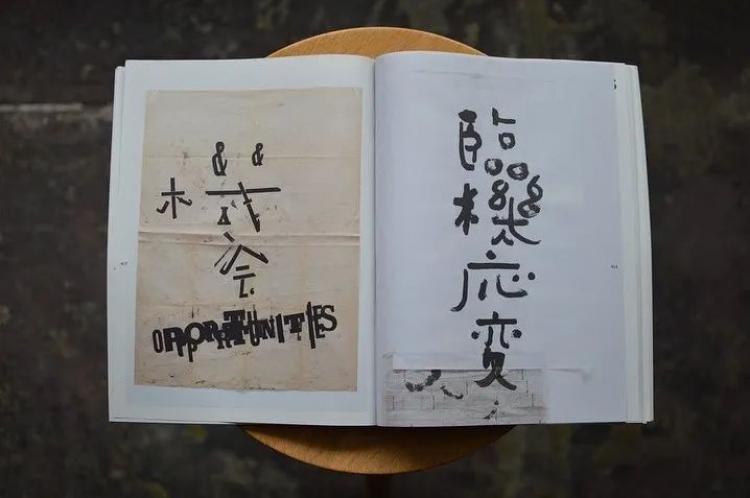 機
会
OPPORTUNITIES
臨
機
応
変